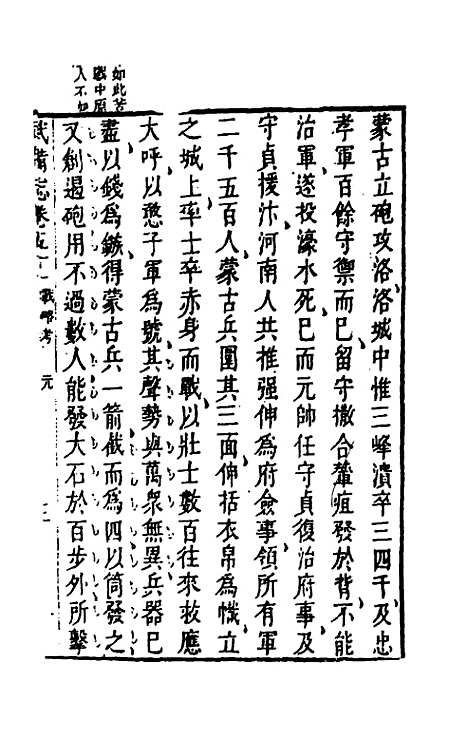 蒙古立砲攻洛洛城中惟三峰潰卒三四千及忠
孝軍百餘守禦而已留守撒合輦疽發於背不能
治軍遂投濠水死已而元帥任守貞復治府事及
守貞援汴河南人共推强伸為府僉事領所有軍
二千五百人蒙古兵圍其三面伸括衣帛為幟立
之城上率士卒赤身而戰以壯士數百往來救應
大呼以憨子軍為號其聲勢與萬衆無異兵器已
盡以錢為鏃得蒙古兵一箭截而為四以筒發之
又創遏砲用不過數人能發大石於百步外所擊
如此苦
戰中原
人不如
武備志卷五十一 戰略考 元